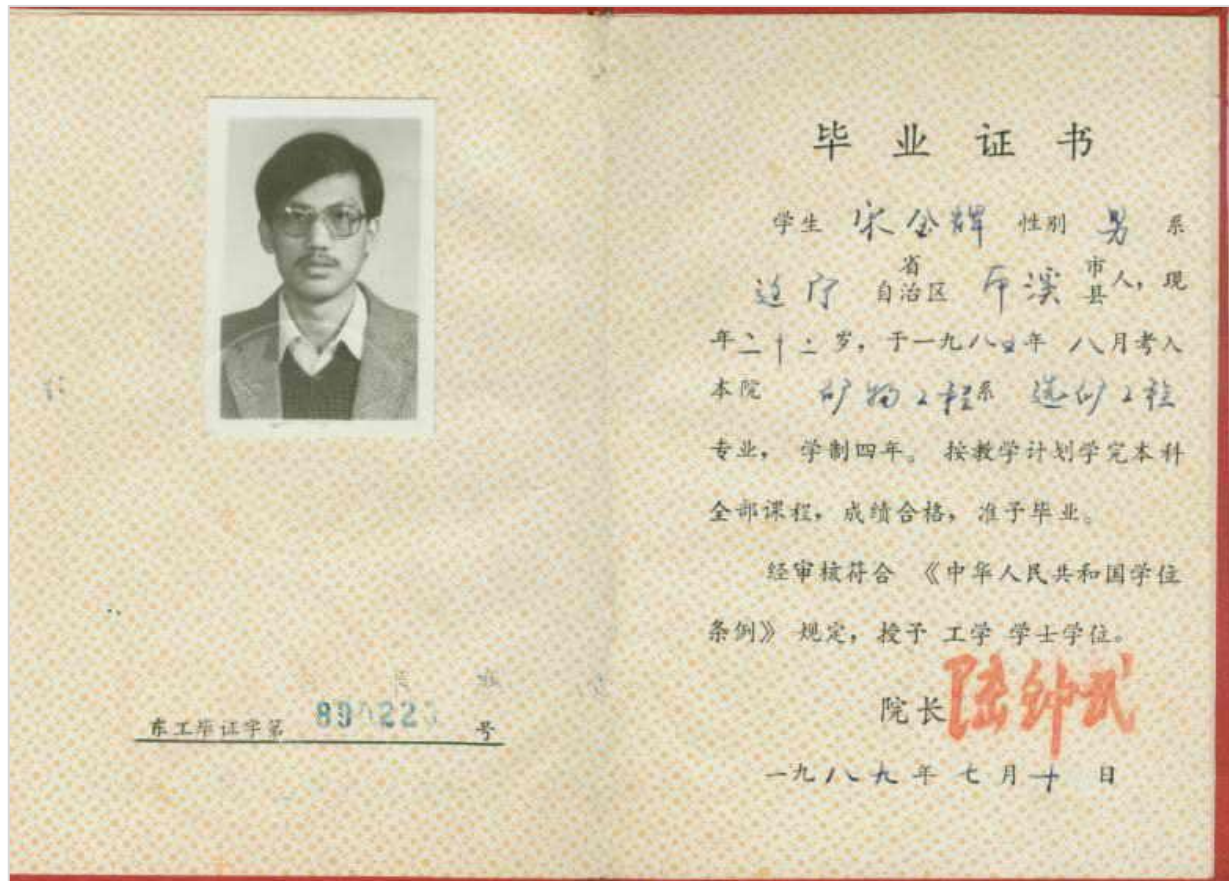 东工毕证字第 号
毕业证书
学生 宋金辉 性别 男 系
辽宁 省自治区 本溪 市县人，现
年二十二岁，于一九八五年 八月考入
本院 矿物工程系 选矿工程
专业，学制四年。按教学计划学完本科
全部课程，成绩合格，准予毕业。
经审核符合《中华人民共和国学位
条例》规定，授予 工学 学士学位。
院长 陆钟武
一九八九年七月十日